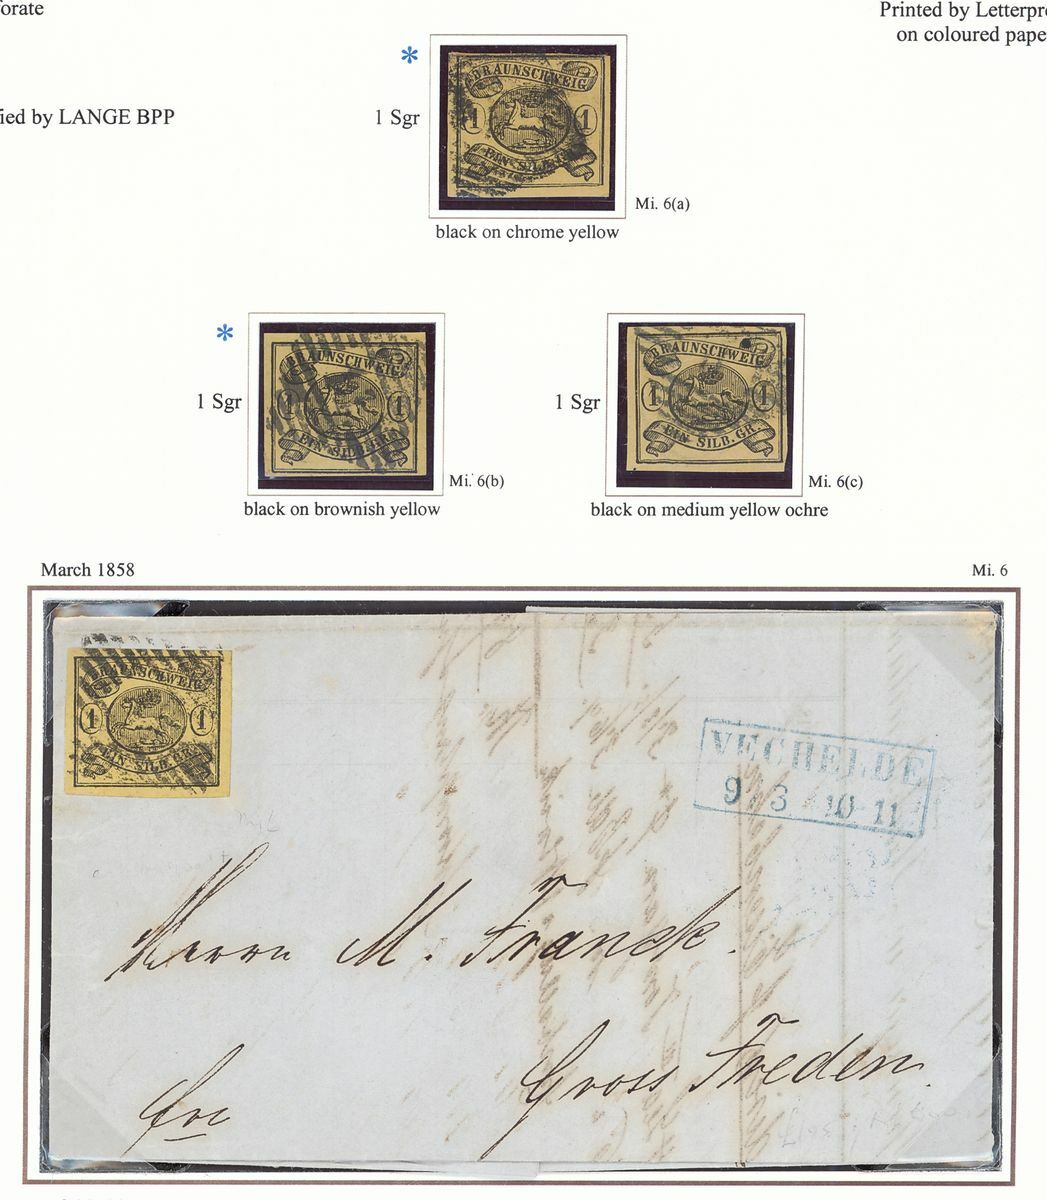 orate
Printed by Letterpr
on coloured pape
ied by LANGE BPP
1 Sgr
BRAUNSCHWEIG
1 1
EIN SILB.GR.
Mi. 6(a)
black on chrome yellow
1 Sgr
BRAUNSCHWEIG
1 1
EIN SILB.GR.
Mi. 6(b)
black on brownish yellow
1 Sgr
BRAUNSCHWEIG
1 1
EIN SILB.GR.
Mi. 6(c)
black on medium yellow ochre
March 1858
Mi. 6
BRAUNSCHWEIG
1 1
EIN SILB.GR.
VECHELDE
9 3 10-11
Herrn M. Franck.
Gross Freden.